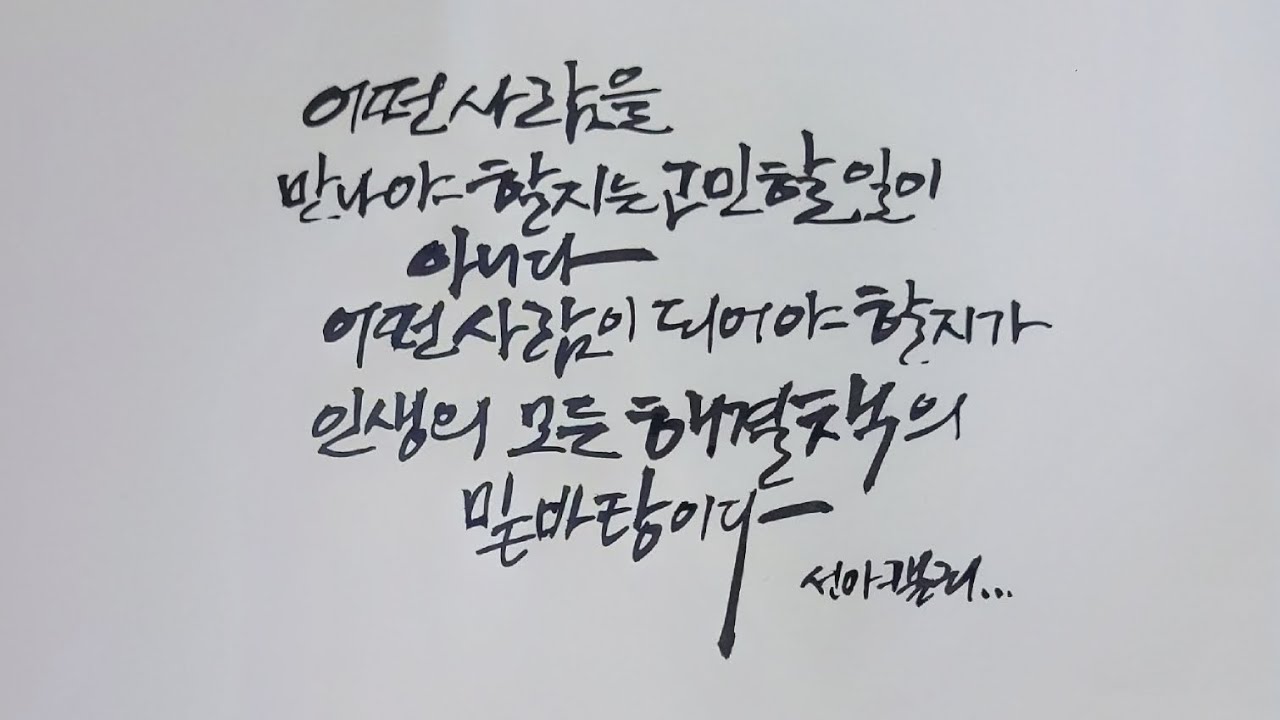 어떤 사람을
만나야 할지는 고민할 일이
아니다
어떤 사람이 되어야 할지가
인생의 모든 해결책의
밑바탕이다
선아캘리...